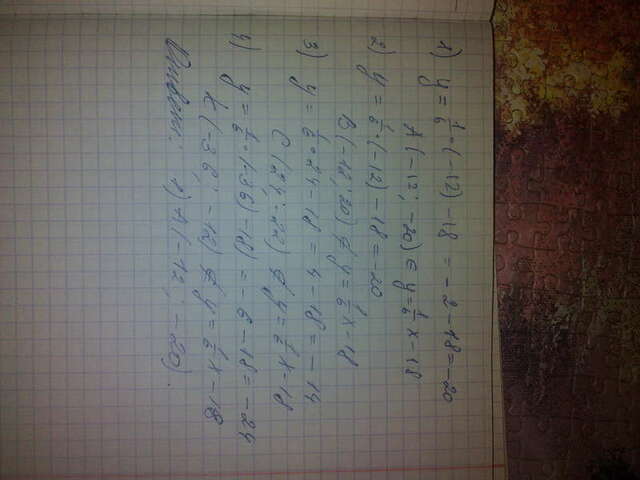 1) y = 1/6 · (-12) - 18 = - 2 - 18 = -20
A (-12; -20) ∈ y = 1/6 x - 18
2) y = 1/6 · (-12) - 18 = -20
B (-12; 20) ∉ y = 1/6 x - 18
3) y = 1/6 · 24 - 18 = 4 - 18 = - 14
C (24; -22) ∉ y = 1/6 x - 18
4) y = 1/6 · (-36) - 18) = - 6 - 18 = - 24
K (-36; -12) ∉ y = 1/6 x - 18
Ответ: 1) A (-12; -20).